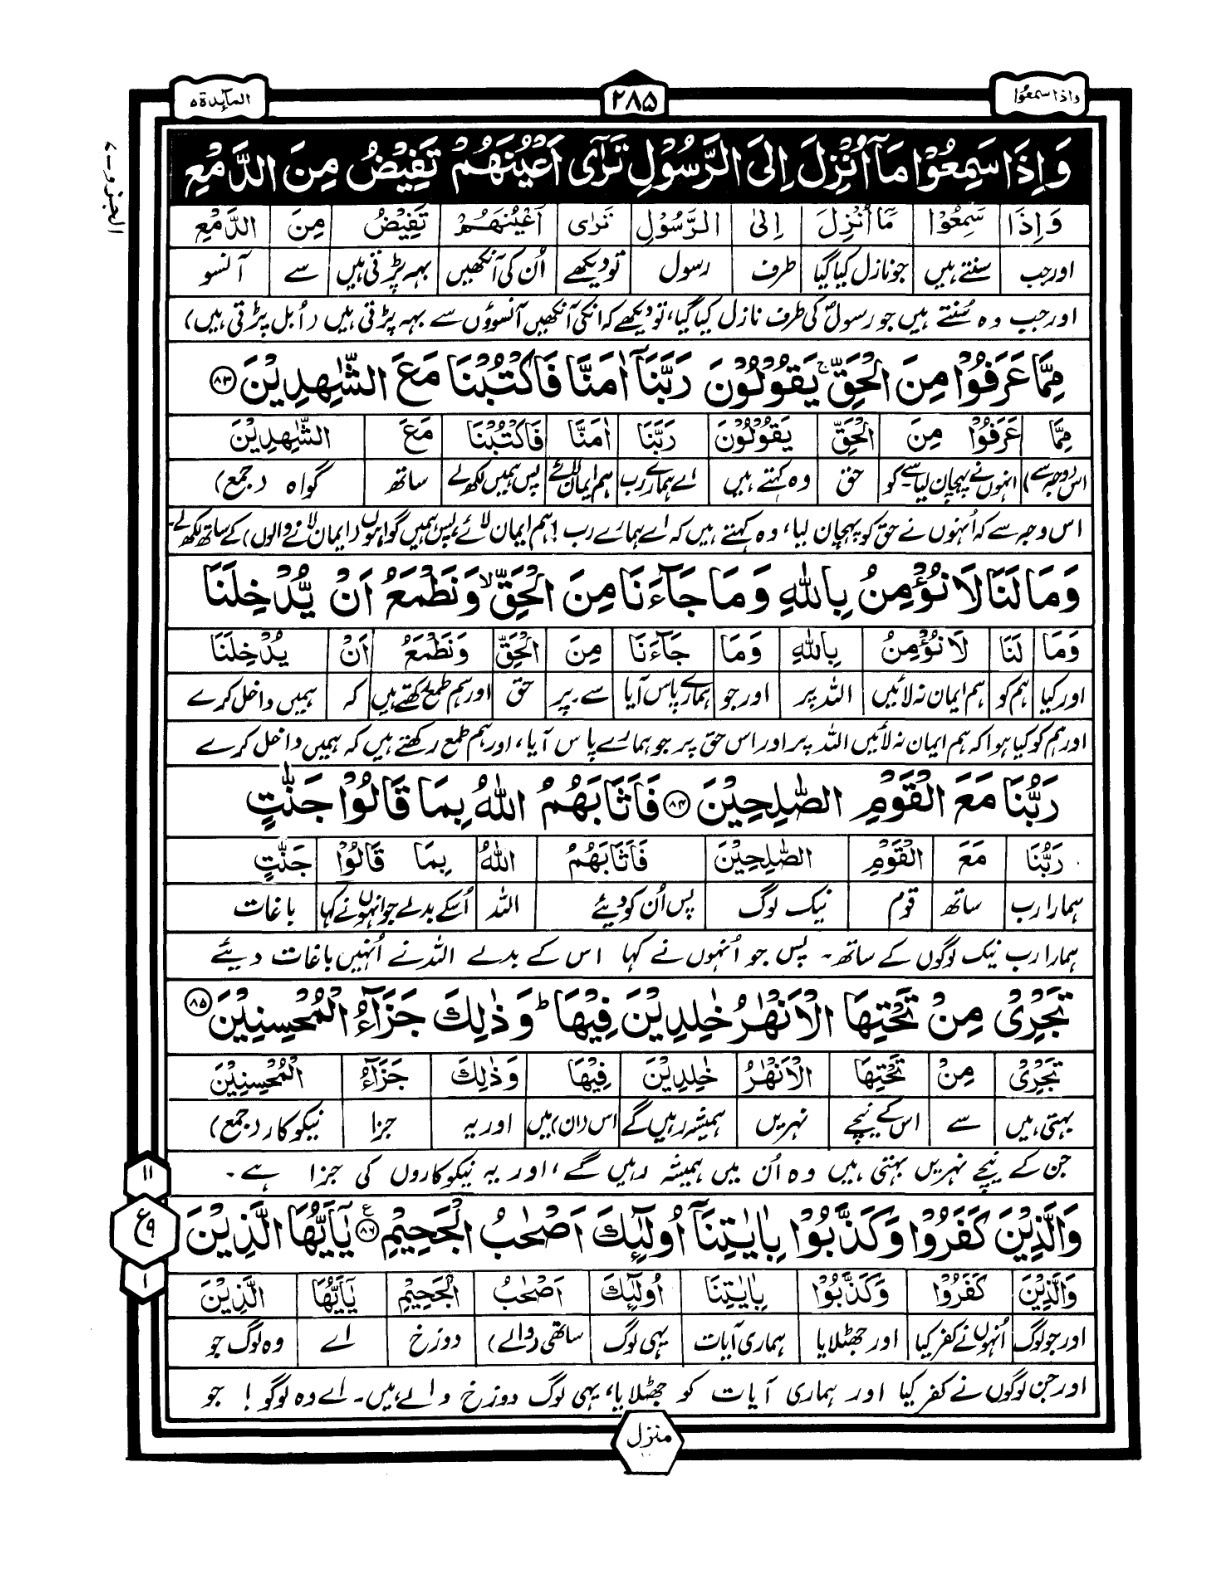 واذا سمعوا
۲۸۵
المآئدة ۵
الجزو - ۷
وَاِذَا سَمِعُوْا مَاۤ اُنْزِلَ اِلَى الرَّسُوْلِ تَرٰۤى اَعْيُنَهُمْ تَفِيْضُ مِنَ الدَّمْعِ
وَاِذَا سَمِعُوْا مَاۤ اُنْزِلَ اِلَى الرَّسُوْلِ تَرٰى اَعْيُنَهُمْ تَفِيْضُ مِنَ الدَّمْعِ
اور جب سنتے ہیں جو نازل کیا گیا طرف رسول تو دیکھے اُن کی آنکھیں بہہ پڑتی ہیں سے آنسو
اور جب وہ سُنتے ہیں جو رسولؐ کی طرف نازل کیا گیا، تو دیکھے کہ انکی آنکھیں آنسوؤں سے بہہ پڑتی ہیں (اُبل پڑتی ہیں)
مِمَّا عَرَفُوْا مِنَ الْحَقِّ ۚ يَقُوْلُوْنَ رَبَّنَاۤ اٰمَنَّا فَاكْتُبْنَا مَعَ الشّٰهِدِيْنَ ۸۳
مِمَّا عَرَفُوْا مِنَ الْحَقِّ يَقُوْلُوْنَ رَبَّنَا اٰمَنَّا فَاكْتُبْنَا مَعَ الشّٰهِدِيْنَ
اس (وجہ سے) انہوں نے پہچان لیا سے۔ کو حق وہ کہتے ہیں اے ہمارے رب ہم ایمان لائے پس ہمیں لکھ لے ساتھ گواہ (جمع)
اس وجہ سے کہ اُنہوں نے حق کو پہچان لیا، وہ کہتے ہیں کہ اے ہمارے رب! ہم ایمان لائے، پس ہمیں گواہوں (ایمان لانے والوں) کے ساتھ لکھ لے۔
وَمَا لَنَا لَا نُؤْمِنُ بِاللّٰهِ وَمَا جَآءَنَا مِنَ الْحَقِّ ۙ وَنَطْمَعُ اَنْ يُّدْخِلَنَا
وَمَا لَنَا لَا نُؤْمِنُ بِاللّٰهِ وَمَا جَآءَنَا مِنَ الْحَقِّ وَنَطْمَعُ اَنْ يُدْخِلَنَا
اور کیا ہم کو ہم ایمان نہ لائیں اللہ پر اور جو ہمارے پاس آیا سے۔ پر حق اور ہم طمع رکھتے ہیں کہ ہمیں داخل کرے
اور ہم کو کیا ہوا کہ ہم ایمان نہ لائیں اللہ پر اور اس حق پر جو ہمارے پاس آیا، اور ہم طمع رکھتے ہیں کہ ہمیں داخل کرے
رَبُّنَا مَعَ الْقَوْمِ الصّٰلِحِيْنَ ۸۴ فَاَثَابَهُمُ اللّٰهُ بِمَا قَالُوْا جَنّٰتٍ
رَبُّنَا مَعَ الْقَوْمِ الصّٰلِحِيْنَ فَاَثَابَهُمُ اللّٰهُ بِمَا قَالُوْا جَنّٰتٍ
ہمارا رب ساتھ قوم نیک لوگ پس اُن کو دیئے اللہ اُسکے بدلے جو انہوں نے کہا باغات
ہمارا رب نیک لوگوں کے ساتھ۔ پس جو اُنہوں نے کہا اس کے بدلے اللہ نے اُنہیں باغات دیئے
تَجْرِىْ مِنْ تَحْتِهَا الْاَنْهٰرُ خٰلِدِيْنَ فِيْهَا ؕ وَذٰلِكَ جَزَآءُ الْمُحْسِنِيْنَ ۸۵
تَجْرِىْ مِنْ تَحْتِهَا الْاَنْهٰرُ خٰلِدِيْنَ فِيْهَا وَذٰلِكَ جَزَآءُ الْمُحْسِنِيْنَ
بہتی ہیں سے اس کے نیچے نہریں ہمیشہ رہیں گے اس (ان) میں اور یہ جزا نیکوکار (جمع)
جن کے نیچے نہریں بہتی ہیں وہ اُن میں ہمیشہ رہیں گے، اور یہ نیکوکاروں کی جزا ہے۔
وَالَّذِيْنَ كَفَرُوْا وَكَذَّبُوْا بِاٰيٰتِنَاۤ اُولٰٓئِكَ اَصْحٰبُ الْجَحِيْمِ ۸۶ ع يٰۤاَيُّهَا الَّذِيْنَ
۱۱
ع ۹
۱
وَالَّذِيْنَ كَفَرُوْا وَكَذَّبُوْا بِاٰيٰتِنَا اُولٰٓئِكَ اَصْحٰبُ الْجَحِيْمِ يٰۤاَيُّهَا الَّذِيْنَ
اور جو لوگ اُنہوں نے کفر کیا اور جھٹلایا ہماری آیات یہی لوگ ساتھی (والے) دوزخ اے وہ لوگ جو
اور جن لوگوں نے کفر کیا اور ہماری آیات کو جھٹلایا، یہی لوگ دوزخ والے ہیں۔ اے وہ لوگو! جو
منزل